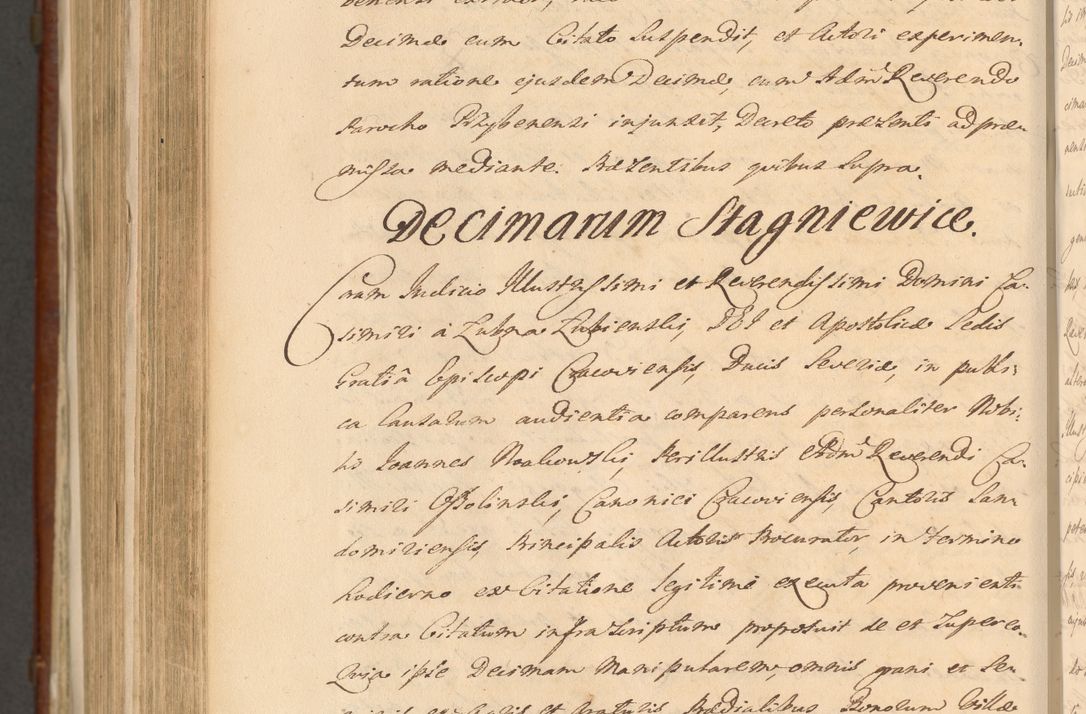 Decimæ cum Citato Suspendit, et Actori experimen-
tum ratione ejusdem Decimæ, cum Adm Reverendo
Parocho Przybenensi injunxit, Decreto præsenti ad præ-
missa mediante. Præsentibus quibus Supra.
Decimarum Stagniewice.
Coram Judicio Illustrissimi et Reverendissimi Domini Ca-
simiri à Łubna Łubienski, DEI et Apostolicæ Sedis
Gratiâ Episcopi Cracoviensis, Ducis Severiæ, in publi-
ca Causarum audientia comparens personaliter Nobi-
lis Joannes Noakowski, Perillustris et Adm Reverendi Ca-
simiri Ossolinski, Canonici Cracoviensis, Cantoris San-
domiriensis, Principalis Actoris Procurator, in Termino
hodierno ex Citatione legitime executa provenienti
contra Citatum infrascriptum proposuit de et super eo.
Quia ipse Decimam Manipularem, omnis grani et Se-
Prædialibus Bonorum Villæ